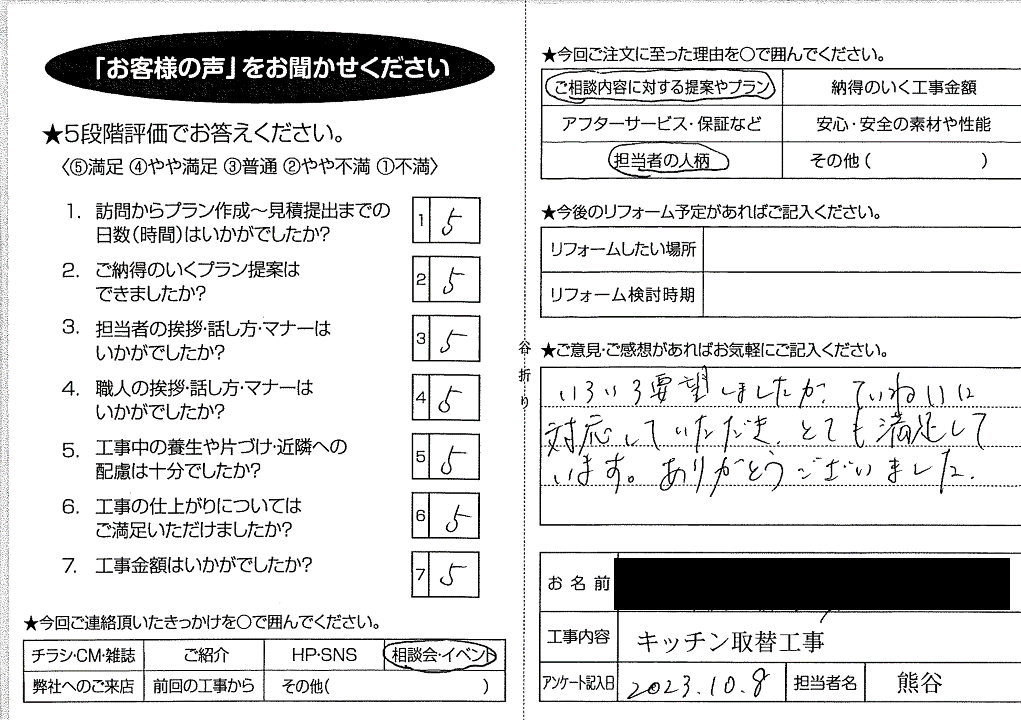 「お客様の声」をお聞かせください
★5段階評価でお答えください。
〈⑤満足 ④やや満足 ③普通 ②やや不満 ①不満〉
1. 訪問からプラン作成～見積提出までの
日数(時間)はいかがでしたか?
1 5
2. ご納得のいくプラン提案は
できましたか?
2 5
3. 担当者の挨拶・話し方・マナーは
いかがでしたか?
3 5
4. 職人の挨拶・話し方・マナーは
いかがでしたか?
4 5
5. 工事中の養生や片づけ・近隣への
配慮は十分でしたか?
5 5
6. 工事の仕上がりについては
ご満足いただけましたか?
6 5
7. 工事金額はいかがでしたか?
7 5
★今回ご連絡頂いたきっかけを○で囲んでください。
チラシ・CM・雑誌 ご紹介 HP・SNS 相談会・イベント
弊社へのご来店 前回の工事から その他( )
谷折り
★今回ご注文に至った理由を○で囲んでください。
ご相談内容に対する提案やプラン 納得のいく工事金額
アフターサービス・保証など 安心・安全の素材や性能
担当者の人柄 その他( )
★今後のリフォーム予定があればご記入ください。
リフォームしたい場所
リフォーム検討時期
★ご意見・ご感想があればお気軽にご記入ください。
いろいろ要望しましたが、ていねいに
対応していただき、とても満足して
います。ありがとうございました.
お名前
工事内容 キッチン取替工事
アンケート記入日 2023.10.8 担当者名 熊谷